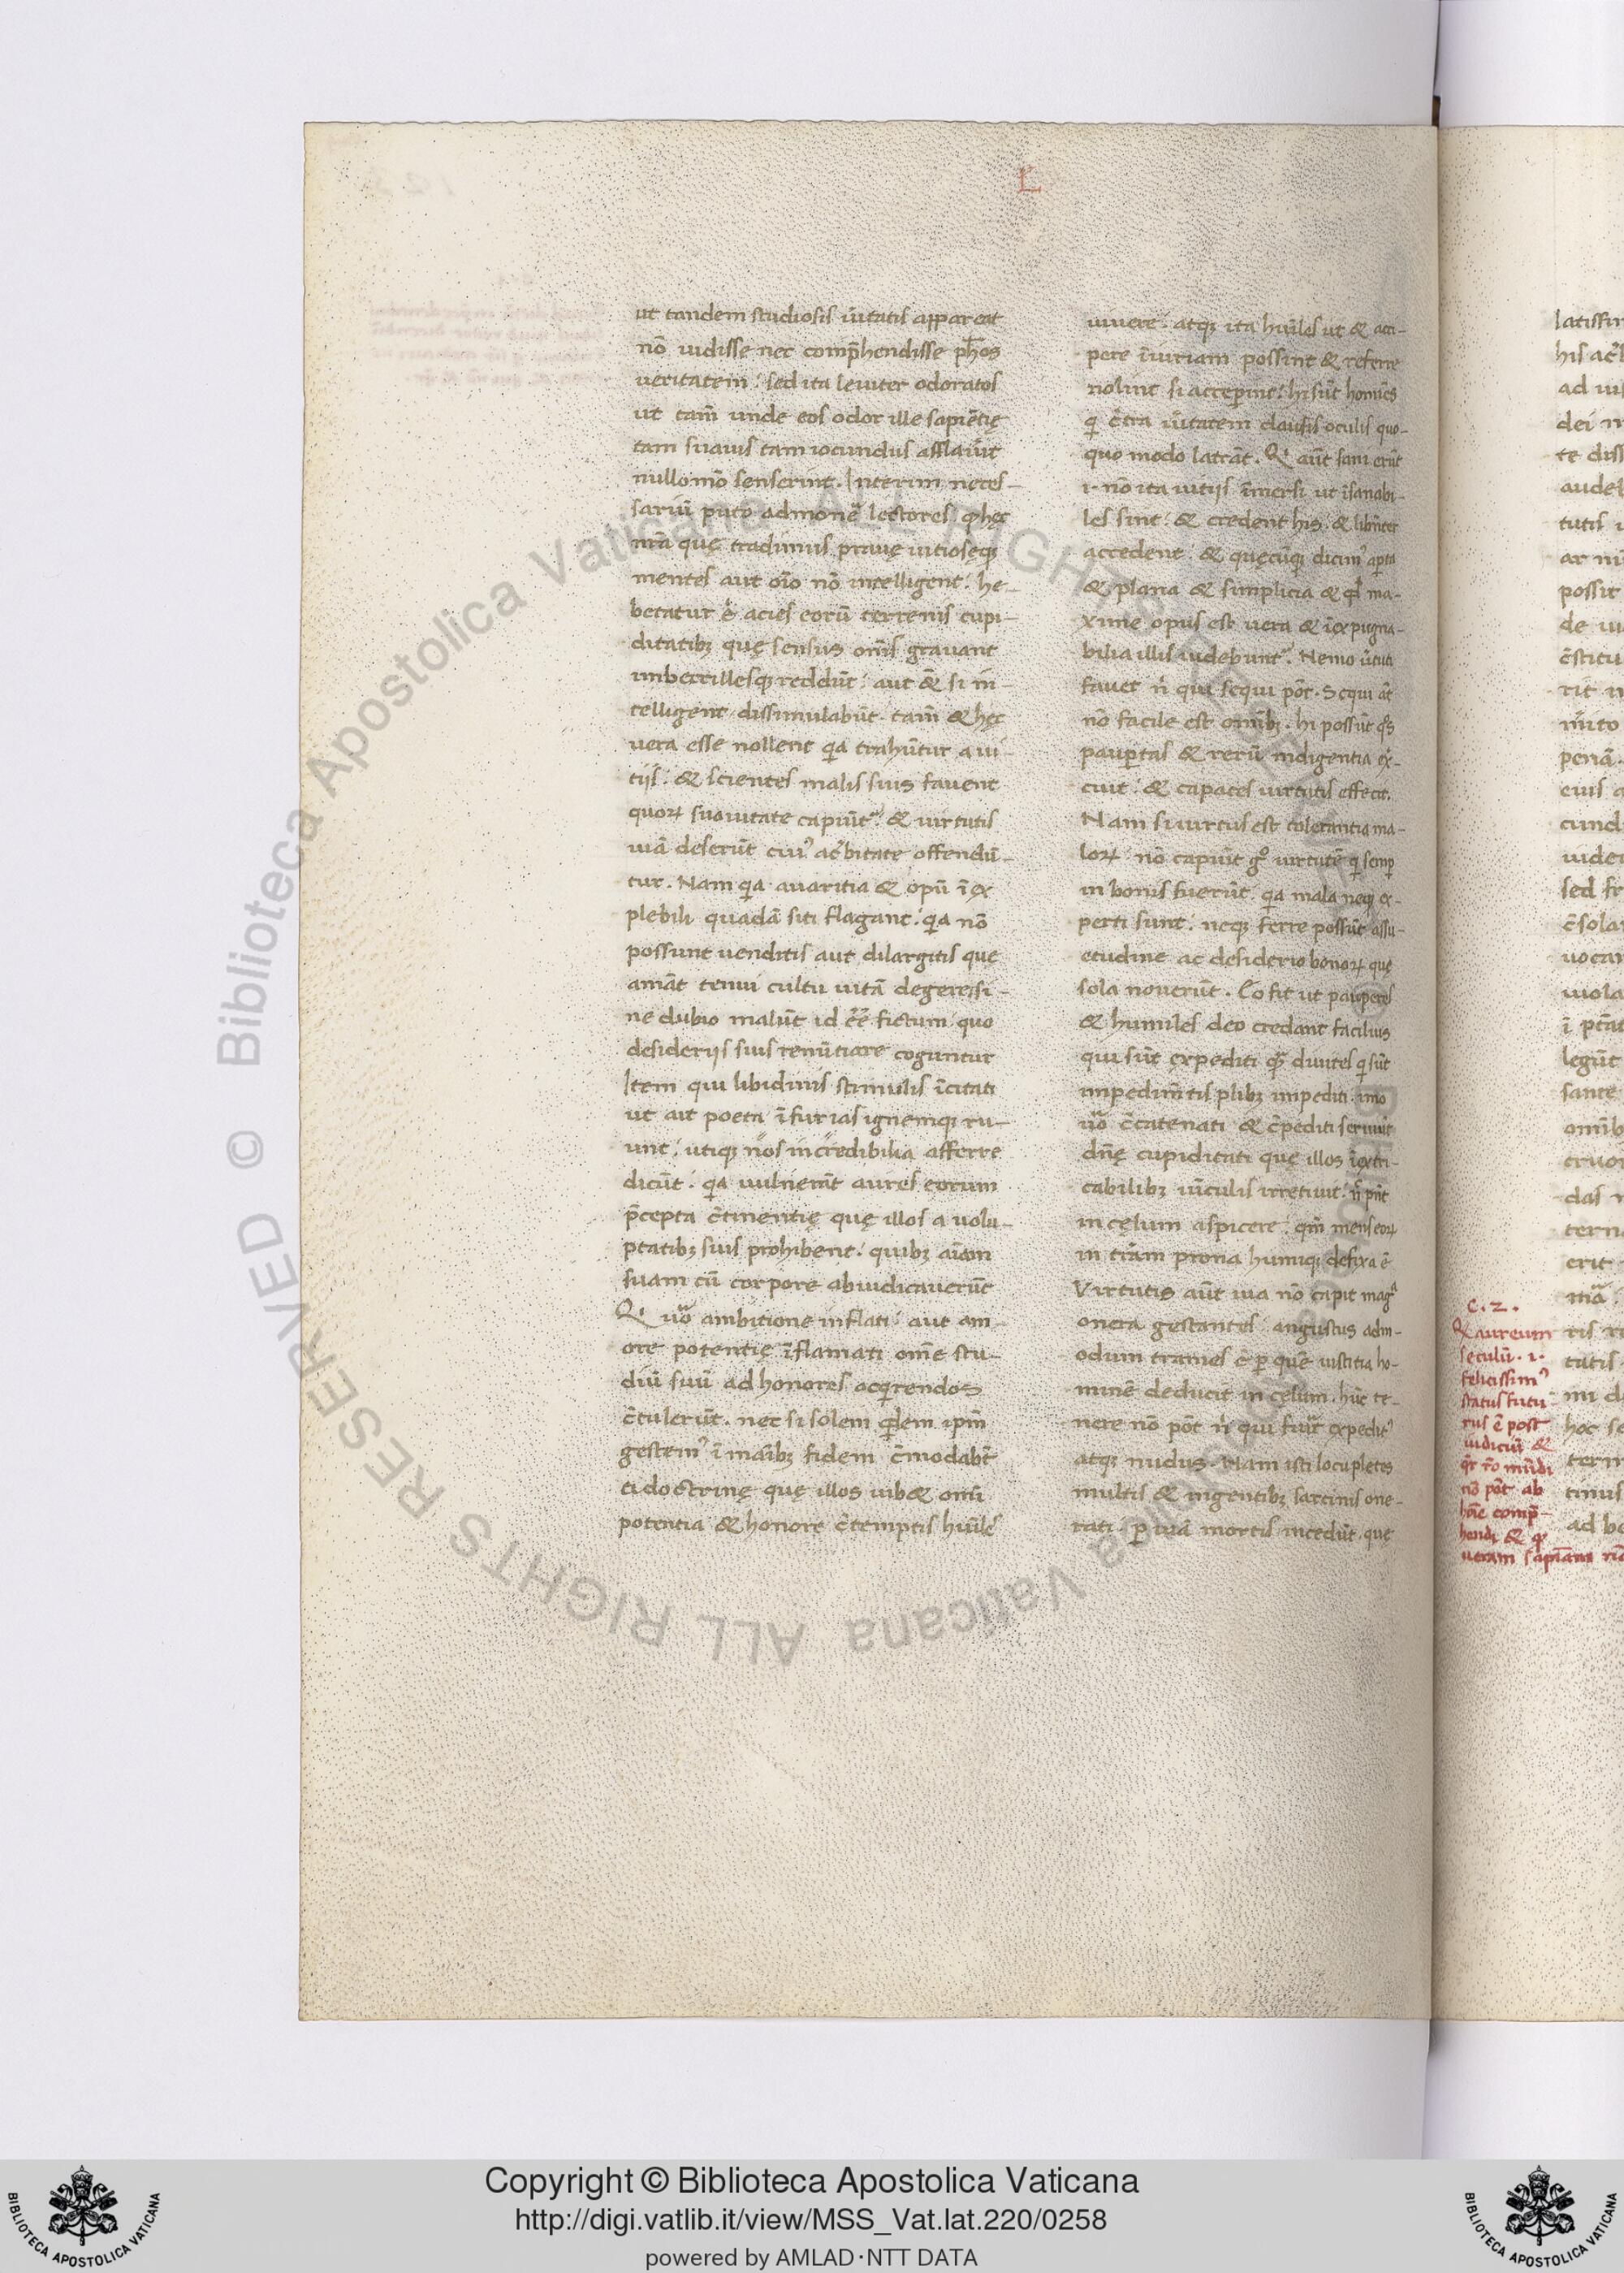 L
ut tandem studiosis ūitatis appareat
nō uidisse nec comp̄hendisse ph̄os
ueritatem: sed ita leuiter odoratos
ut tam̄ unde eos odor ille sapiētię
tam suauis tam iocundus afflaūit
nullo mō senserint. Interim neces-
sariū puto admonē lectores ꝙ hęc
nr̄a quę tradimus prauę uitiosęqꝫ
mentes aut oīo nō intelligent: he-
betatur .n. acies eorū terrenis cupi-
ditatibꝫ quę sensus om̄s grauant
imbecillesqꝫ reddūt: aut & si in-
telligent dissimulabūt. tam̄ & hęc
uera esse nollent q̄a trahūtur a ui-
tijs: & scientes malis suis fauent
quoꝝ suauitate capiūt᷑: & uirtutis
uiā deserūt cuiꝰ acʼbitate offendū-
tur. Nam q̄a auaritia & opū īex
plebili quadā siti flagant: q̄a nō
possunt uenditis aut dilargitis quę
amāt tenui cultu uitā degere: si-
ne dubio malūt id eē̄ fictum quo
desiderijs suis renūtiare coguntur
Item qui libidinis stimulis īcitati
ut ait poeta ī furias ignemqꝫ ru-
unt: utiqꝫ nos incredibilia afferre
dicūt: q̄a uulnerāt aures eorum
p̄cepta c̄tinentię quę illos a uolu-
ptatibꝫ suis prohibent: quibꝫ aīam
suam cū corpore abiudicauerūt
Qͥ uͦo ambitione inflati: aut am-
ore potentię īflamati om̄e stu-
diū suū ad honores acq̄rendos
c̄tulerūt. nec si solem q̄dem ip̄m
gestemꝰ ī maībꝫ fidem c̄modabūt
ei doctrinę quę illos iub& om̄i
potentia & honore c̄temptis hūiles
uiuere: atqꝫ ita hūiles ut & acci-
pere iniuriam possint & referre
nolint si acceperint: hi sūt homīes
qͥ c̄tra ūitatem clausis oculis quo-
quo modo latrāt. Qͥ aūt sani erūt
.i. nō ita uitijs īmersi ut īsanabi-
les sint: & credent his. & libēter
accedent: & quęcūqꝫ dicimꝰ apta
& plana & simplicia & qd̄ ma-
xime opus est uera & īexpugna-
bilia illis uidebunt᷑. Nemo ūtuti
fauet nͥ qui sequi pōt. Sequi āt
nō facile est omībꝫ. hi possūt qͦs
paup̄tas & rerū indigentia ex̄-
cuit: & capaces uirtutis effecit.
Nam si uirtus est tolerantia ma-
loꝝ: nō capiūt gͦ uirtutē qͥ semꝑ
in bonis fuerūt. q̄a mala neqꝫ ex-
perti sunt: neqꝫ ferre possūt assu-
etudine ac desiderio bonoꝝ quę
sola nouerūt. Eo fit ut pauperes
& humiles deo credant facilius
qui sūt expediti q̄ diuites qͥ sūt
impedim̄tis plibꝫ impediti. imo
uͦo c̄catenati & c̄pediti seruiūt
dn̄ę cupiditati quę illos īextri-
cabilibꝫ uīculis irretiuit: nͨ pn̄t
in cęlum aspicere: qm̄ mens eoꝝ
in trām prona humiqꝫ defixa ē
Virtutis aūt uia nō capit magͣ
onera gestantes: angustus adm-
odum trames ē ꝑ quē iustitia ho-
minē deducit in cęlum. hūc te-
nere nō pōt nͥ qui fuīt expeditꝰ
atqꝫ nudus. Nam isti locupletes
multis & ingentibꝫ sarcinis one-
rati. ꝑ uiā mortis incedūt. quę
C. 2.
Qͥ aureum
seculū .i.
felicissimꝰ
status futu-
rus ē post
iudiciū &
q̄r rō mūdi
nō pōt ab
hōīe comp̄-
hendi & q̄
ueram sapiam̄ nō
Copyright © Biblioteca Apostolica Vaticana
http://digi.vatlib.it/view/MSS_Vat.lat.220/0258
powered by AMLAD·NTT DATA
BIBLIOTECA APOSTOLICA VATICANA
BIBLIOTECA APOSTOLICA VATICANA
© Biblioteca Apostolica Vaticana ALL RIGHTS RESERVED